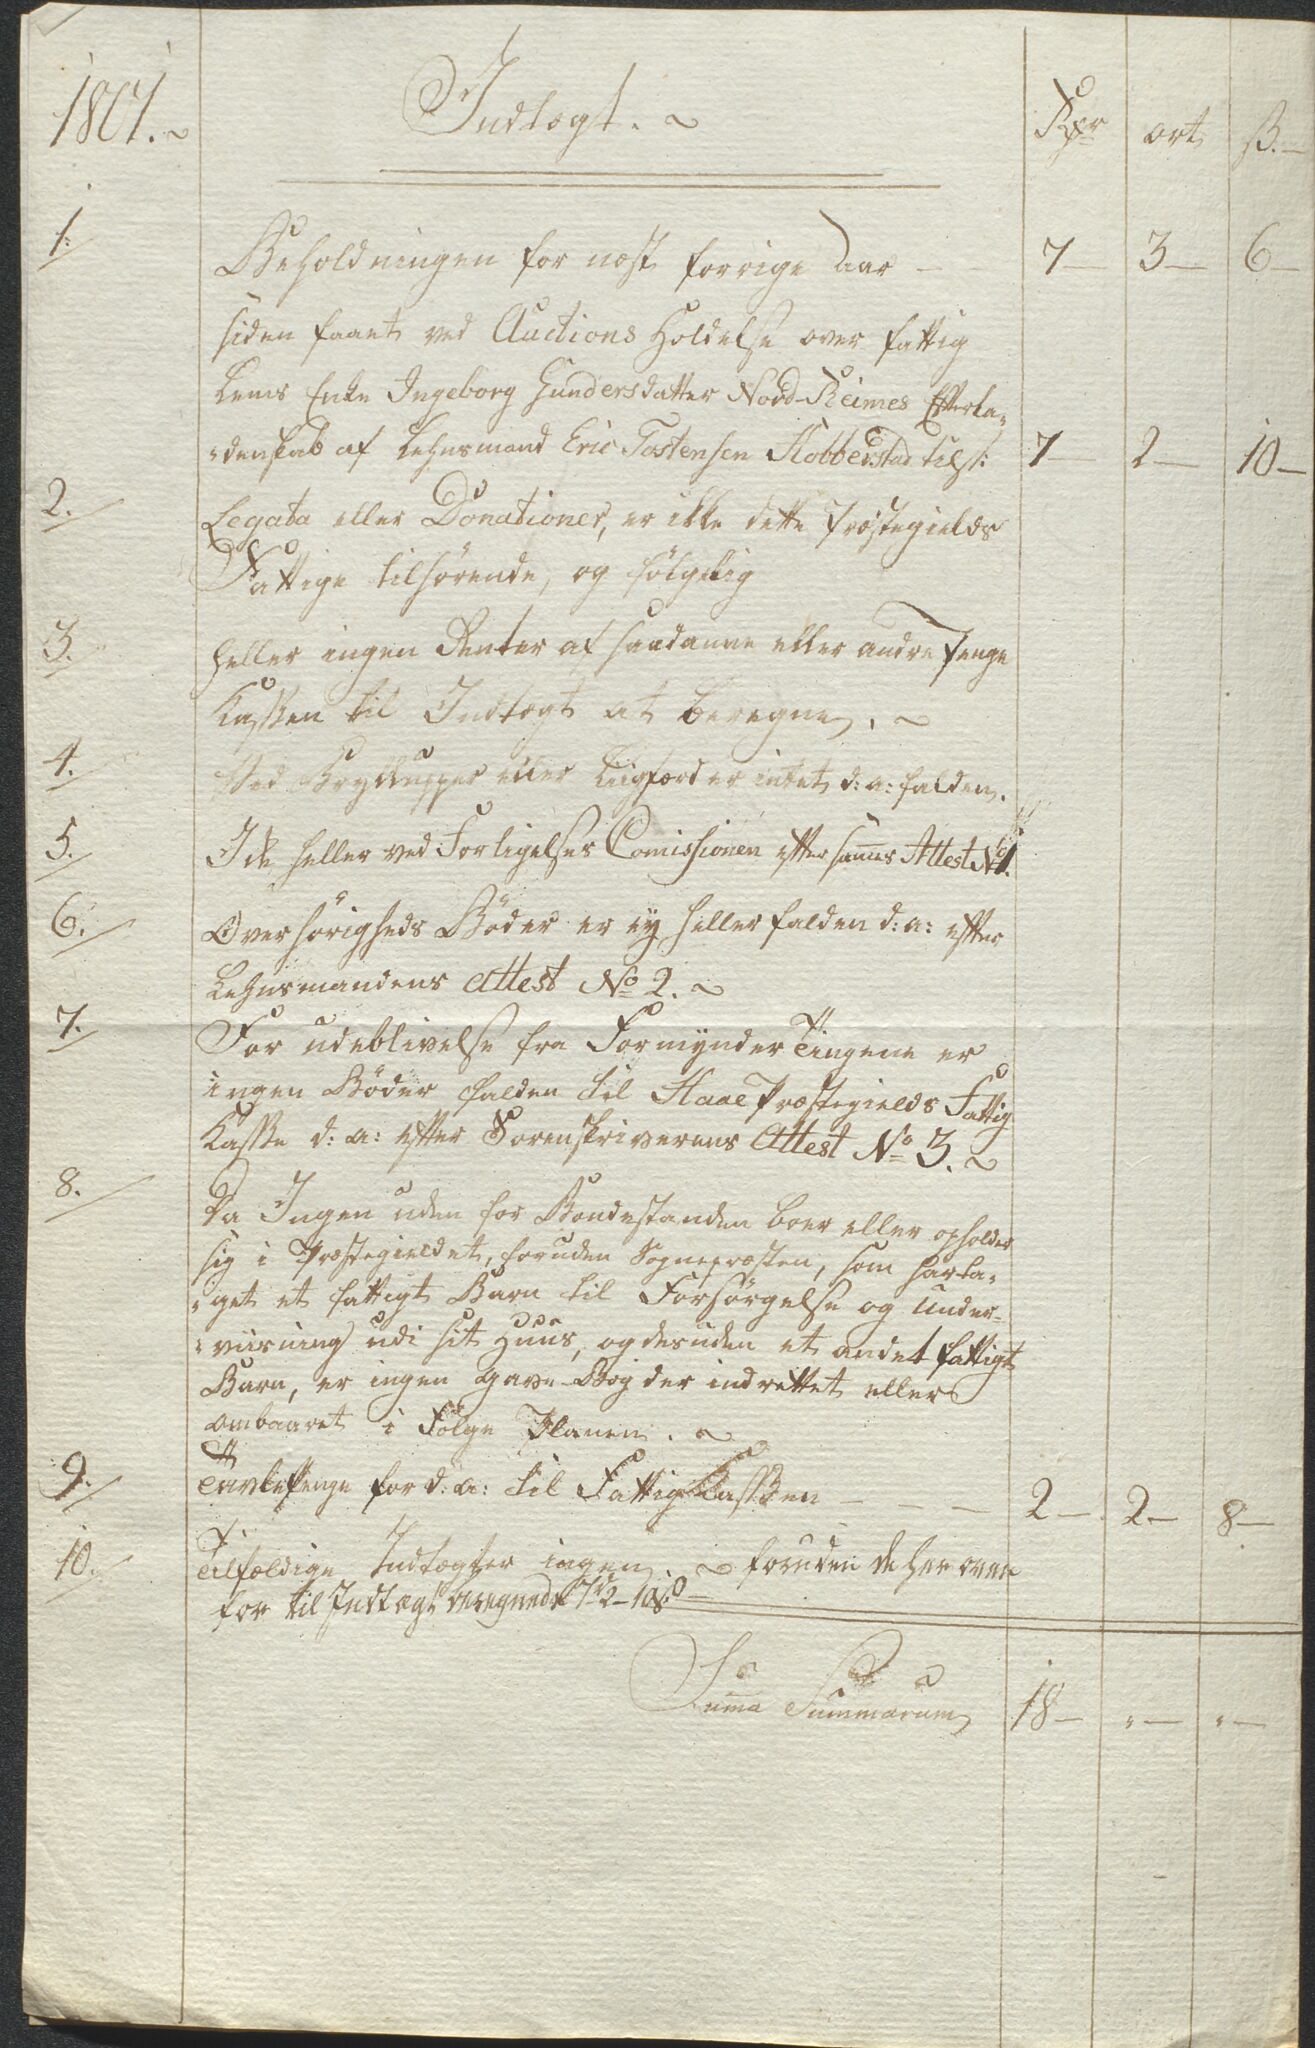 1801. Indtægt. Rdr ort ß.
1. Beholdningen for næst forrige Aar — 7 — 3 — 6 —
siden faaet ved Auctions Holdelse over fattig
Lems Enke Ingeborg Gundersdatter Nord-Reimes Efterla-
-denskab af Lehnsmand Eric Tostensen Hobberstad tilst: 7 — 2 — 10 —
2. Legata eller Donationer, er ikke dette Præstegields
Fattige tilhörende, og fölgelig
3. heller ingen Renter af saadanne eller andre Penge
Kassen til Indtægt at beregne.
4. Ved Bryllupper eller Liigfærd er intet d: a: falden.
5. Ikke heller ved Forligelses Comissionen efter sammes Attest No 1.
6. Overhörigheds Böder er ey heller falden d: a: efter
Lehnsmandens Attest No 2.
7. For udeblivelse fra Formynder Tingene er
ingen Böder falden til Haae Præstegields Fattig
Kasse d: a: efter Sorenskriverens Attest No 3.
8. Da Ingen uden for Bondestanden boer eller opholder
sig i Præstegieldet, foruden Sognepræsten, som har ta-
-get et fattigt Barn til Forsörgelse og Under-
-viisning udi sit Huus, og desuden et andet fattigt
Barn, er ingen Gave-Bog der indrettet eller
ombaaret i Fölge Planen.
9. Tavlepenge for d: a: til Fattig Kassen — — — 2 — 2 — 8 —
10. Tilfældige Indtægter ingen foruden de her oven
for til Indtægt beregnede 7 - 2 - 10 ß
Suma Summarum 18 — " — " —